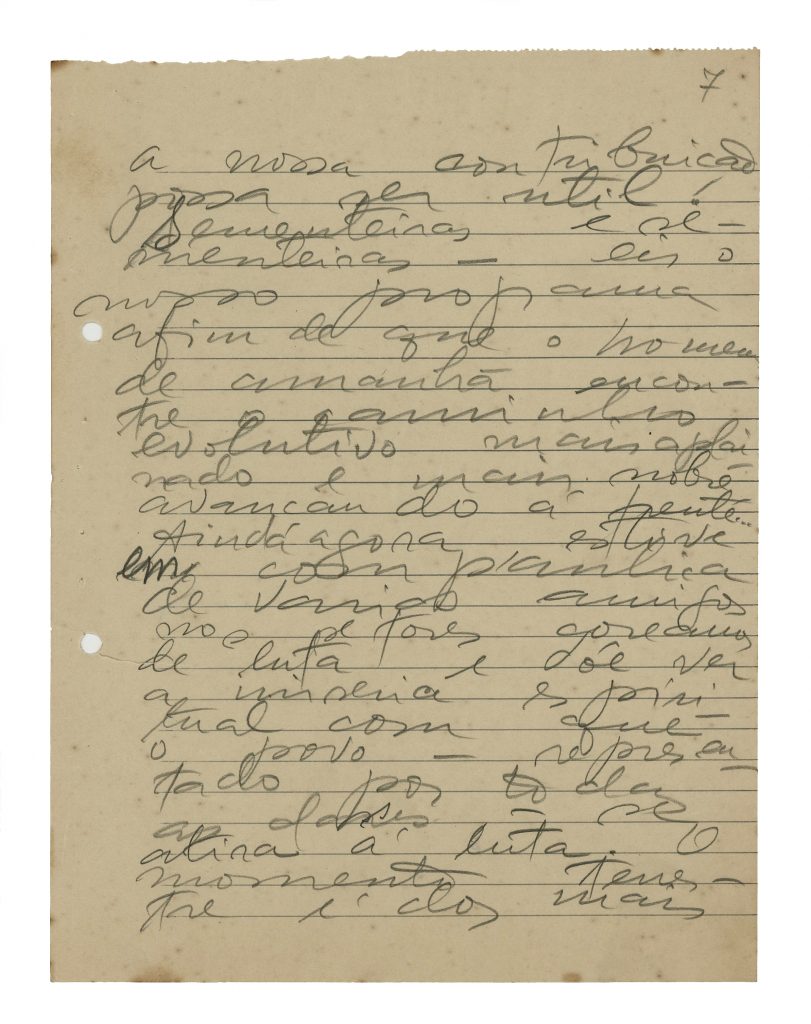 7
a nossa contribuicão
possa ser util!
Sementeiras e se-
menteiras — eis o
nosso programa
afim de que o homem
de amanhã encon-
tre o caminho
evolutivo mais aplai
nado e mais nobre
avancando á frente...
Ainda agora estive
em companhia
de varios amigos
nos setores coreanos
de luta e dóe ver
a miseria espiri
tual com que
o povo — represen-
tado por todas
as classes — se
atira á luta. O
momento terres-
tre é dos mais